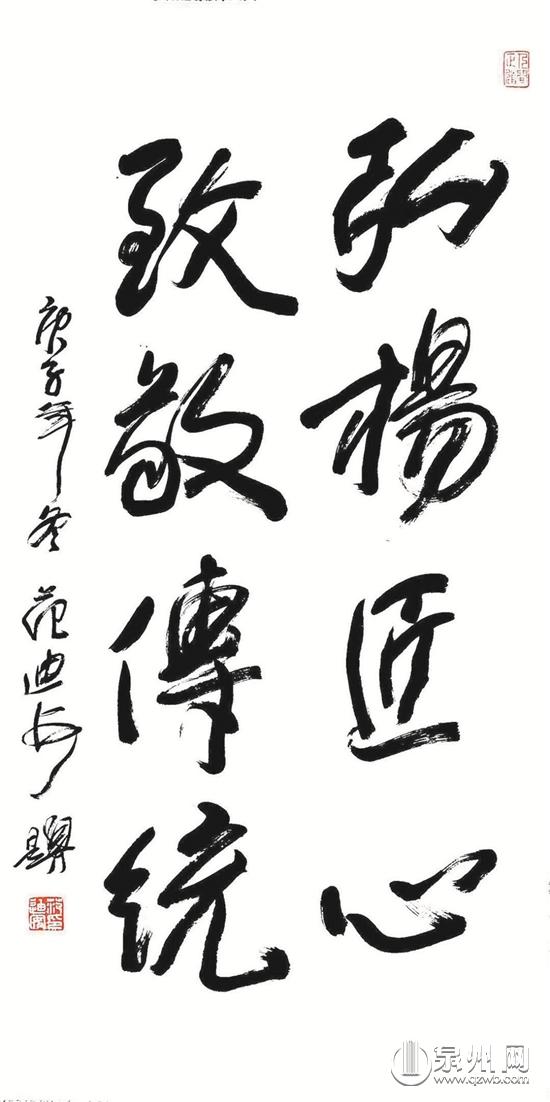 弘揚匠心
致敬傳統
庚子年冬 范迪安題
泉州网
www.qzwb.com